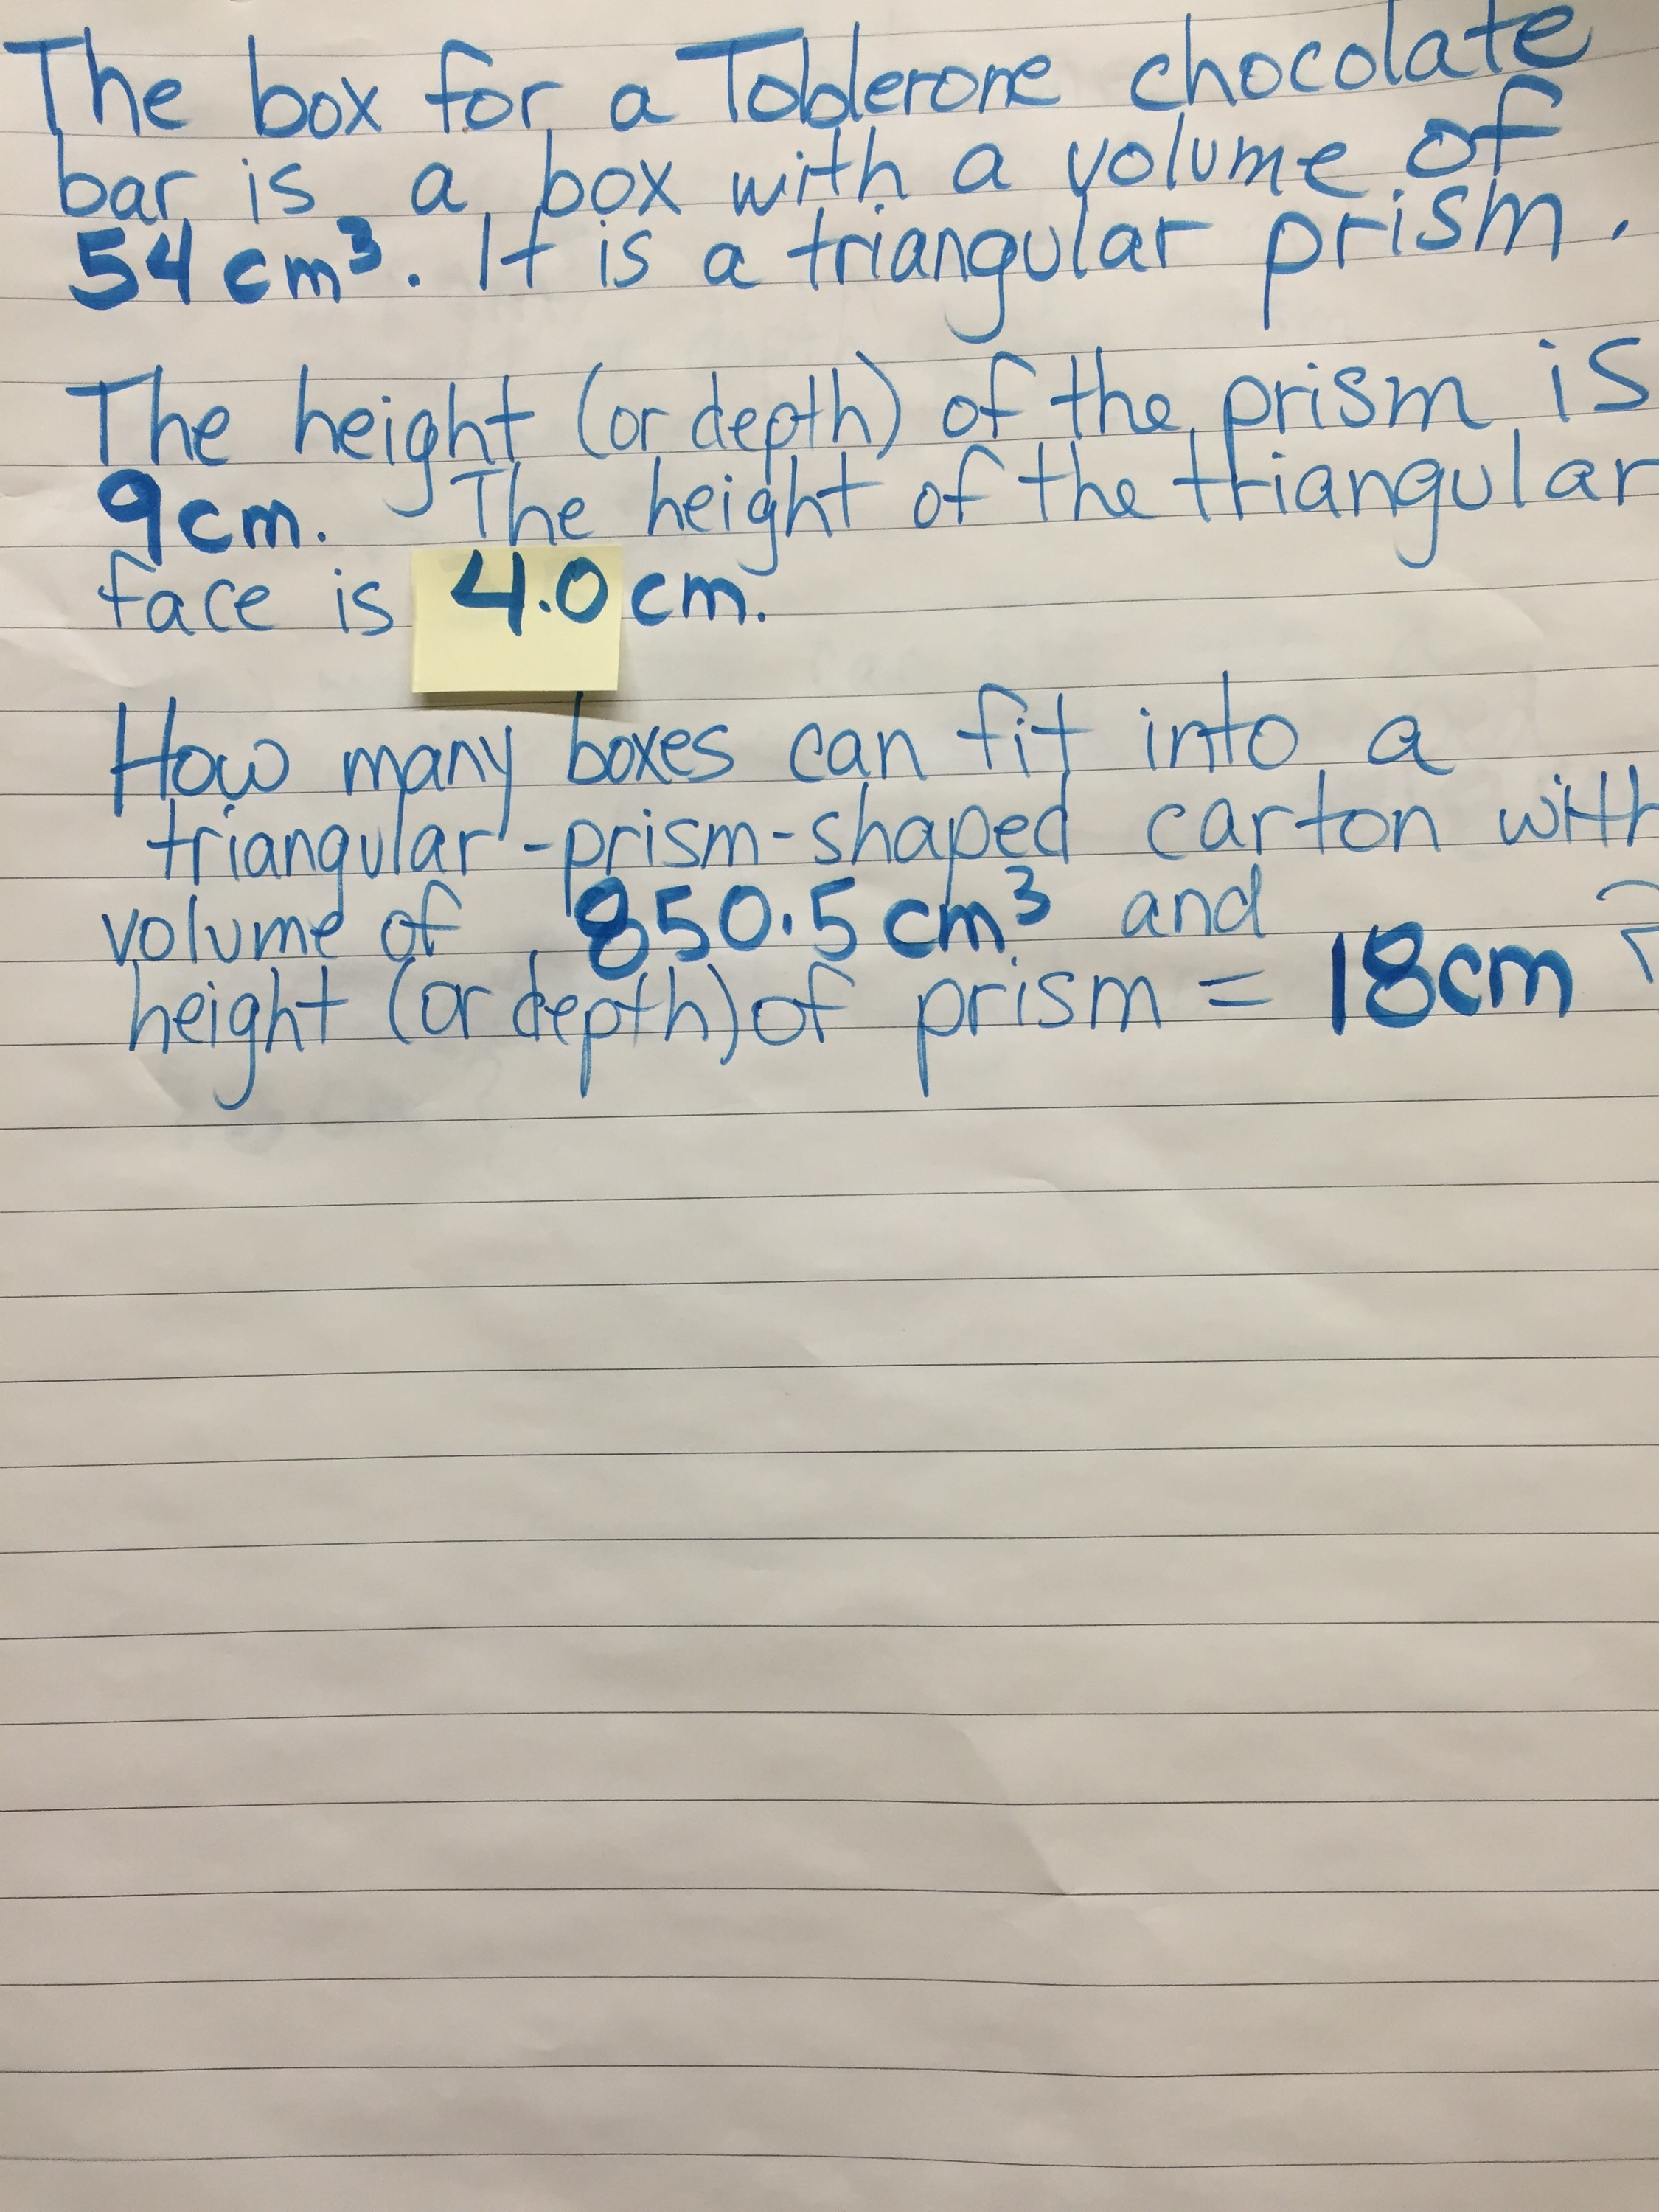 The box for a Toblerone chocolate
bar is a box with a volume of
54 cm³. It is a triangular prism.
The height (or depth) of the prism is
9cm. The height of the triangular
face is 4.0 cm.
How many boxes can fit into a
triangular-prism-shaped carton with
volume of 850.5 cm³ and
height (or depth) of prism = 18cm ?